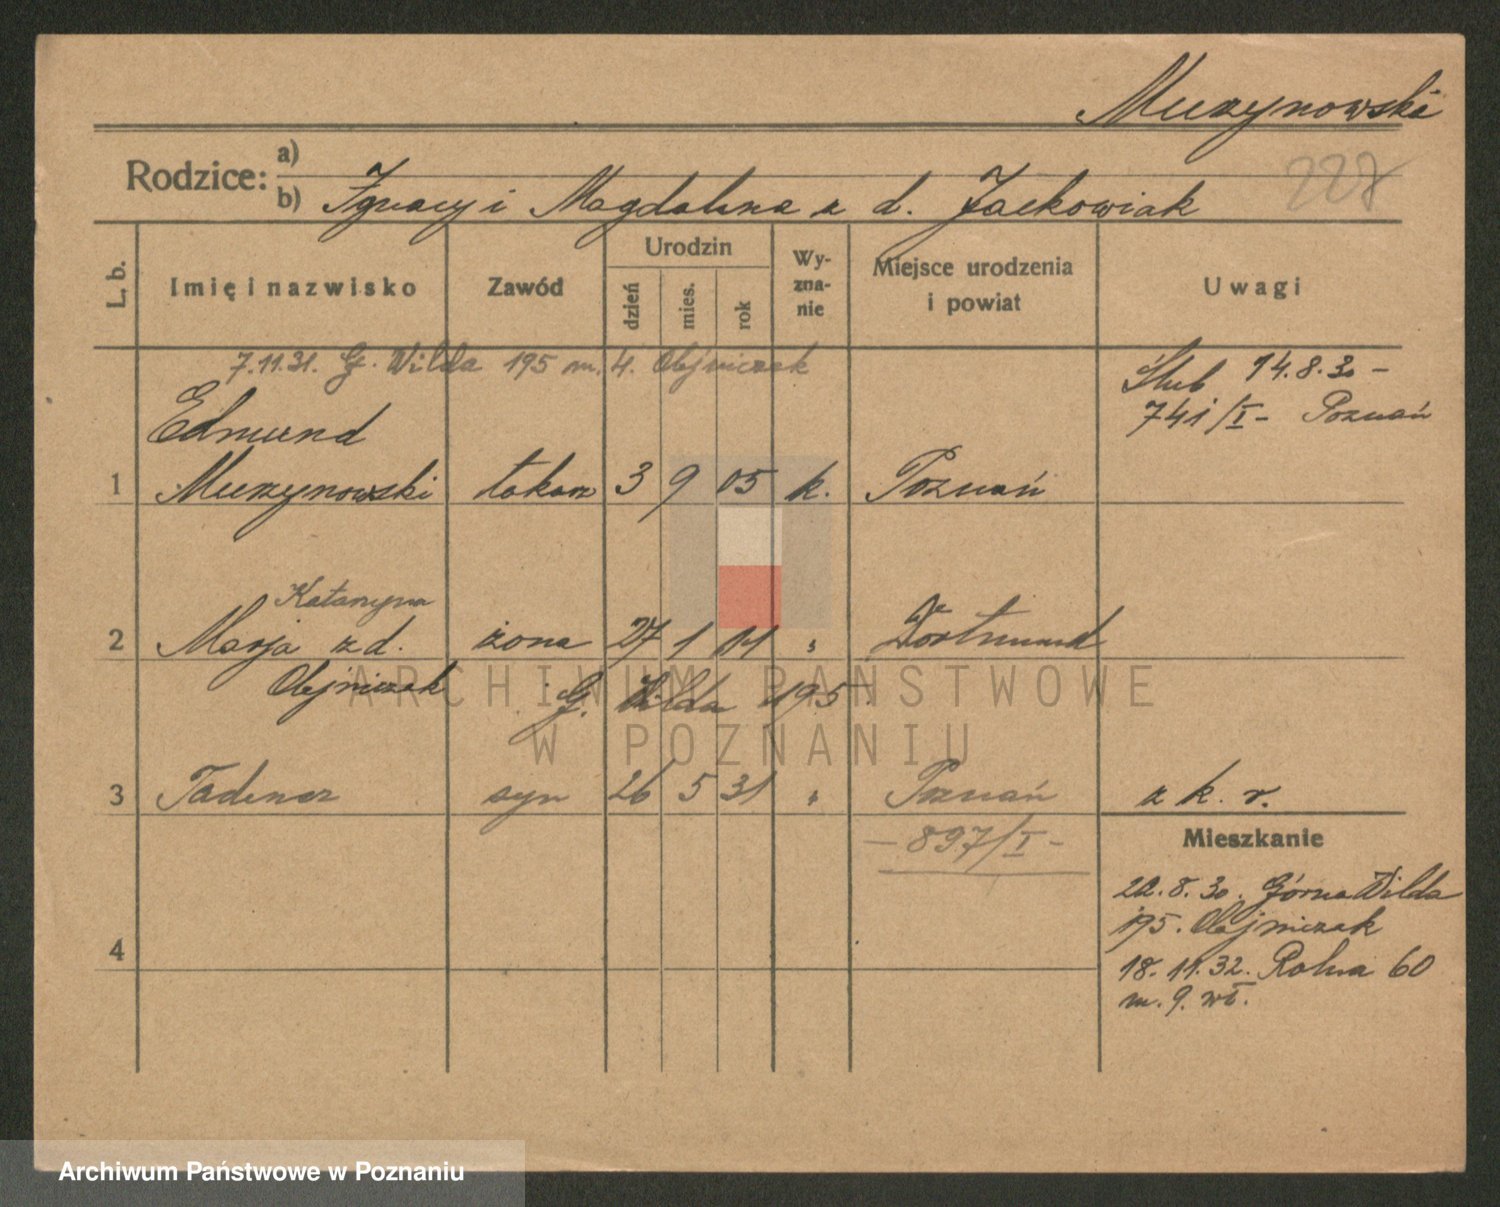 Murzynowski
Rodzice: a)
b) Ignacy i Magdalena z d. Jackowiak
227
L. b.
Imię i nazwisko
Zawód
Urodzin
dzień
mies.
rok
Wy-
zna-
nie
Miejsce urodzenia
i powiat
Uwagi
7.11.31. G. Wilda 195 m. 4. Olejniczak
Ślub 14.8.30 -
741/I - Poznań
Edmund
1 Murzynowski tokarz 3 9 05 k. Poznań
Katarzyna
2 Marja z d. żona 27 1 11 " Dortmund
Olejniczak G. Wilda 195.
3 Tadeusz syn 26 5 31 " Poznań z k. r.
- 897/I -
Mieszkanie
20.8.30. Górna Wilda
195. Olejniczak
18.11.32. Rolna 60
m. 9. wł.
4
ARCHIWUM PAŃSTWOWE
W POZNANIU
Archiwum Państwowe w Poznaniu